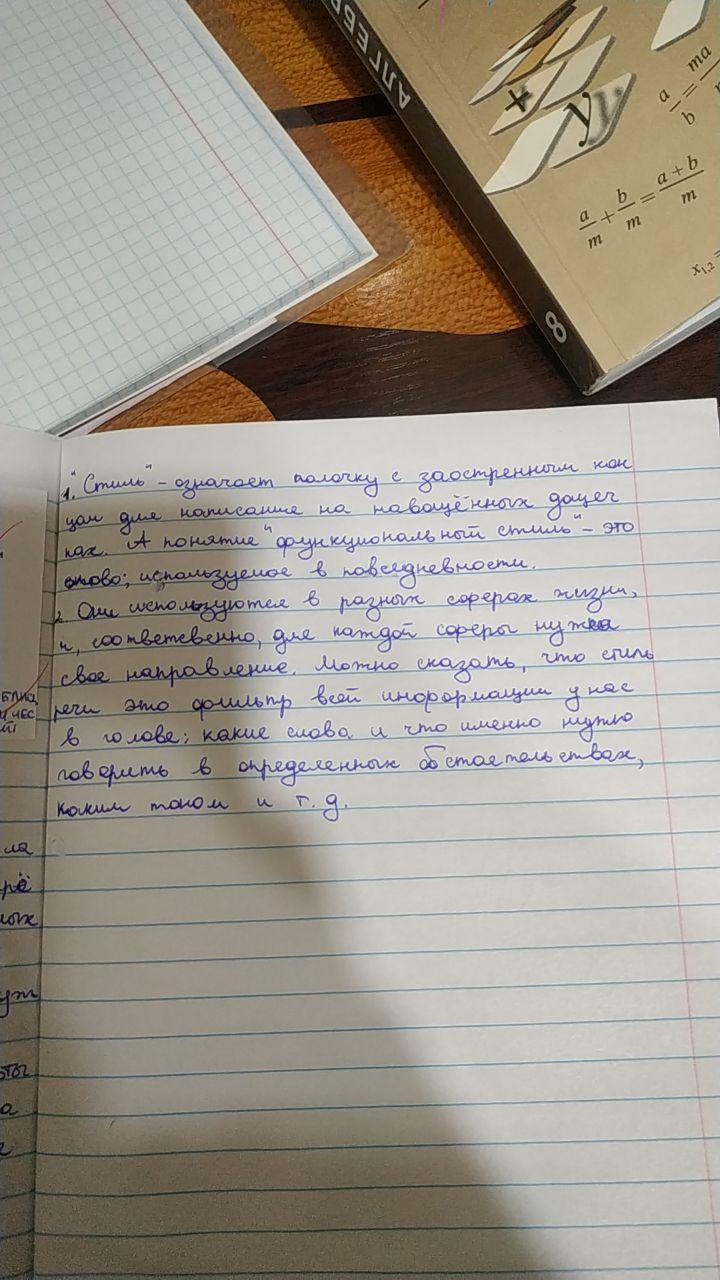 АЛГЕБР
y
a/b = ma
a/m + b/m = a+b/m
x1,2 =
8
1. "Стиль" - означает палочку с заостренным кон
цом для написание на навощённых дощеч
ках. А понятие "функциональный стиль" - это
слово; используемое в повседневности.
2. Они используются в разных соферах жизни,
и, соответсвенно, для каждой соферы нужна
свое направление. Можно сказать, что стиль
речи это фильтр всей информации у нас
в голове; какие слова и что именно нужно
говорить в определенных обстаетельствах,
каким тоном и т.д.
БЛИЦ
И ЧЕС
ла
рё
ных
уж
а